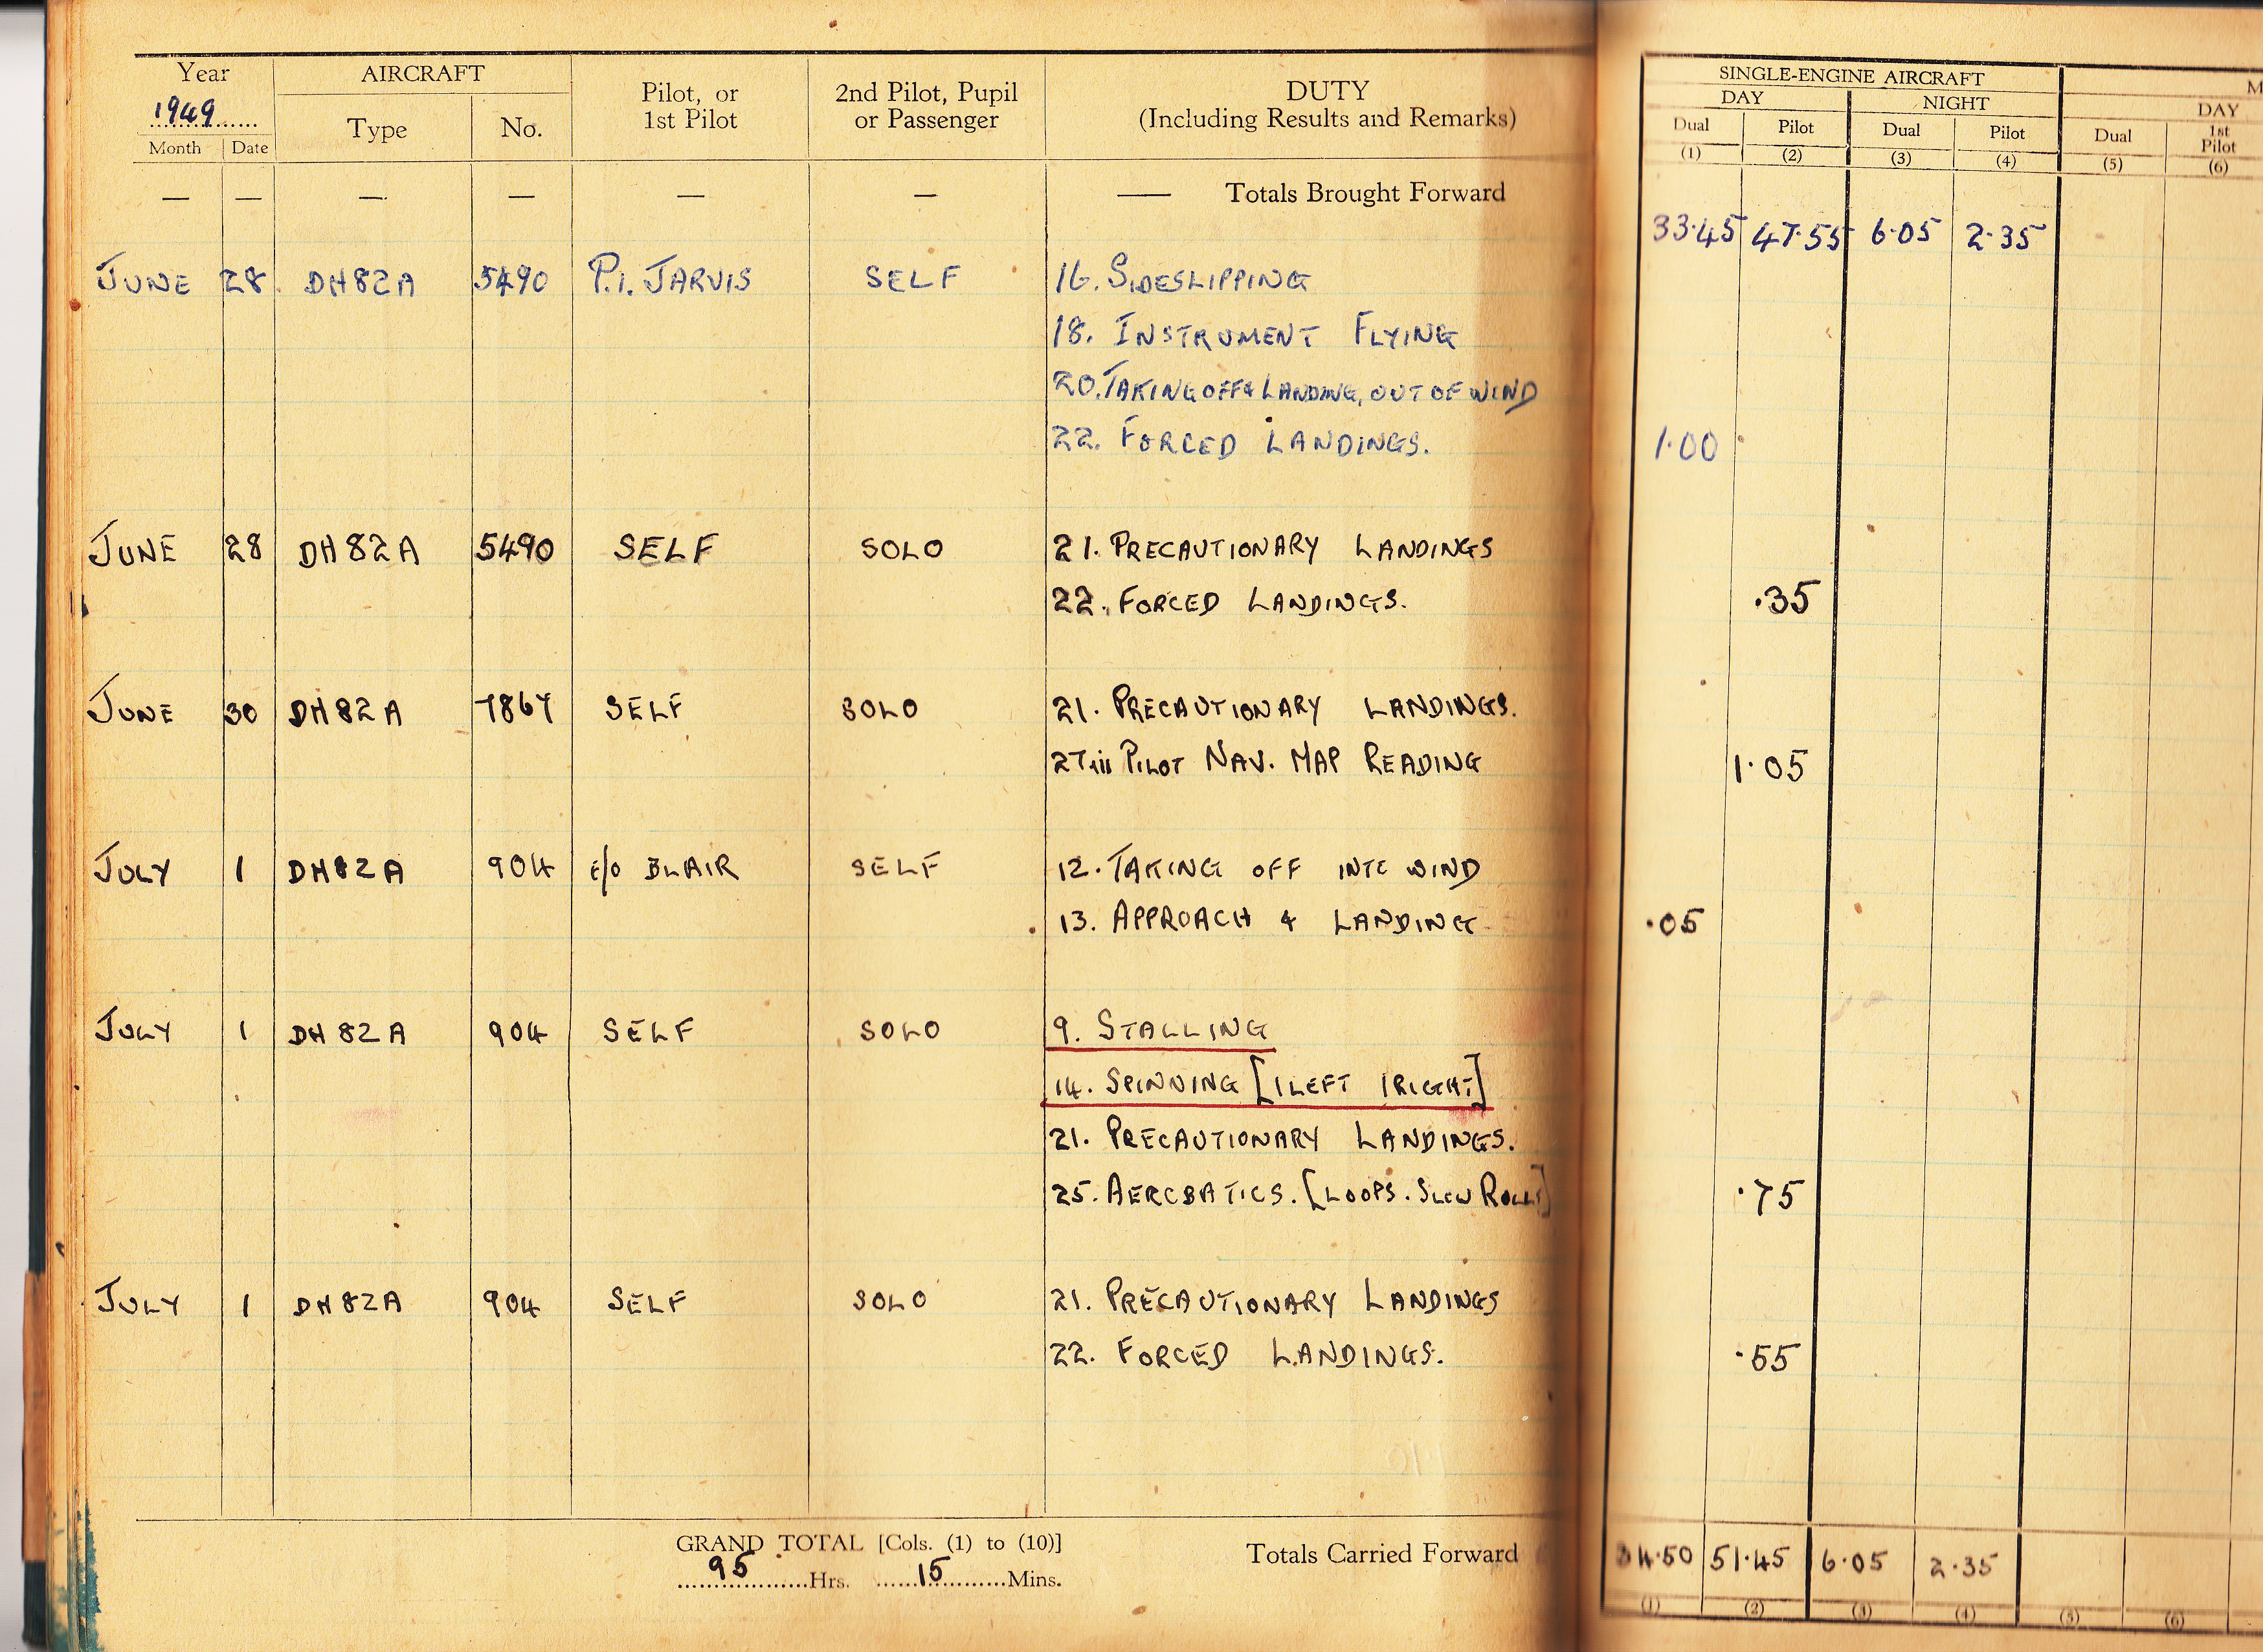 Year AIRCRAFT Pilot, or 2nd Pilot, Pupil DUTY SINGLE-ENGINE AIRCRAFT M
1949 Type No. 1st Pilot or Passenger (Including Results and Remarks) DAY NIGHT DAY
Month Date Dual Pilot Dual Pilot Dual 1st Pilot
(1) (2) (3) (4) (5) (6)
— — — — — — — Totals Brought Forward
33.45 47.55 6.05 2.35
JUNE 28. DH82A 5490 P.I. JARVIS SELF 16. SIDESLIPPING
18. INSTRUMENT FLYING
20. TAKING OFF & LANDING, OUT OF WIND
22. FORCED LANDINGS. 1.00
JUNE 28 DH82A 5490 SELF SOLO 21. PRECAUTIONARY LANDINGS
22. FORCED LANDINGS. .35
JUNE 30 DH82A SELF SOLO 21. PRECAUTIONARY LANDINGS.
27iii PILOT NAV. MAP READING 1.05
JULY 1 DH82A 904 BLAIR SELF 12. TAKING OFF INTO WIND
13. APPROACH & LANDING .05
JULY 1 DH82A 904 SELF SOLO 9. STALLING
14. SPINNING [1LEFT 1RIGHT]
21. PRECAUTIONARY LANDINGS.
25. AEROBATICS. [LOOPS. SLOW ROLLS] .75
JULY 1 DH82A 904 SELF SOLO 21. PRECAUTIONARY LANDINGS
22. FORCED LANDINGS. .55
GRAND TOTAL [Cols. (1) to (10)] Totals Carried Forward 34.50 51.45 6.05 2.35
95 Hrs. 15 Mins.
(1) (2) (3) (4) (5) (6)